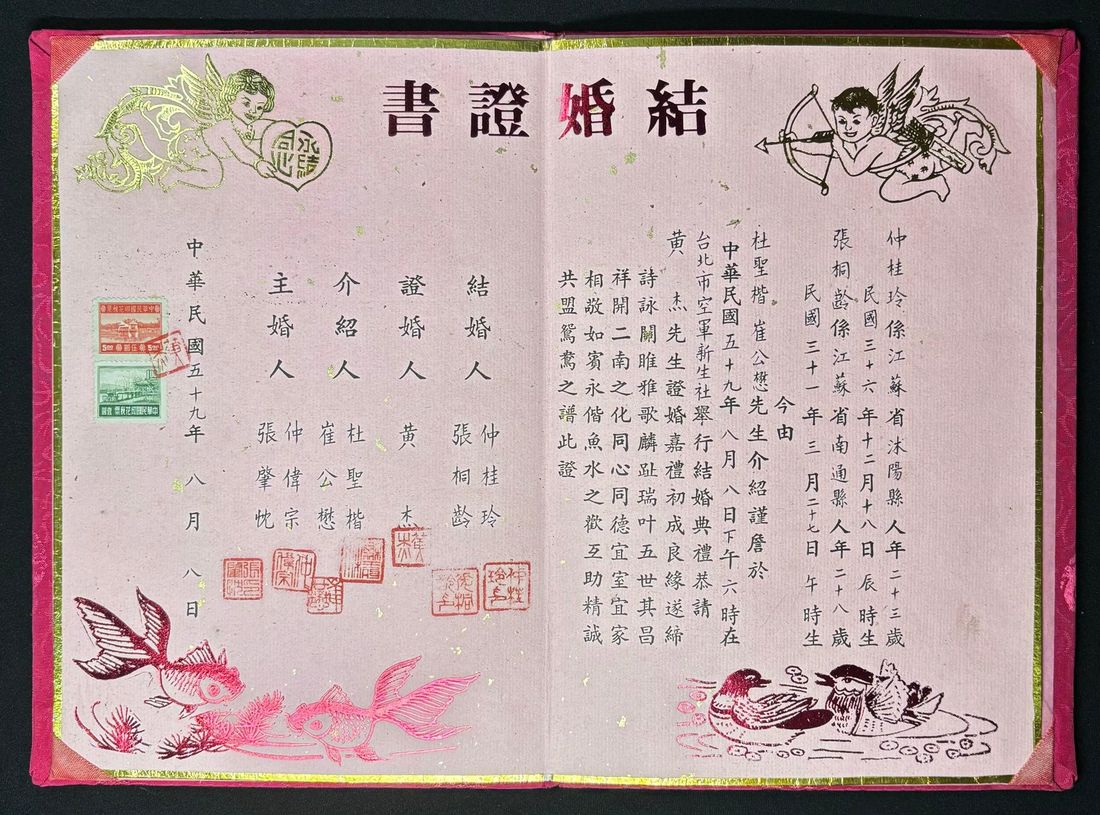 結婚證書
仲桂玲係江蘇省沭陽縣人年二十三歲
民國三十六年十二月十八日辰時生
張桐齡係江蘇省南通縣人年二十八歲
民國三十一年三月二十七日午時生
今由
杜聖楷崔公懋先生介紹謹詹於
中華民國五十九年八月八日下午六時在
台北市空軍新生社舉行結婚典禮恭請
黃杰先生證婚嘉禮初成良緣遂締
詩詠關雎雅歌麟趾瑞叶五世其昌
祥開二南之化同心同德宜室宜家
相敬如賓永偕魚水之歡互助精誠
共盟鴛鴦之譜此證
結婚人 仲桂玲
張桐齡
證婚人 黃杰
介紹人 杜聖楷
崔公懋
主婚人 仲偉宗
張肇忱
中華民國五十九年八月八日
永結同心
中華民國印花稅票
5.00 伍圓 5.00
中華民國印花稅票